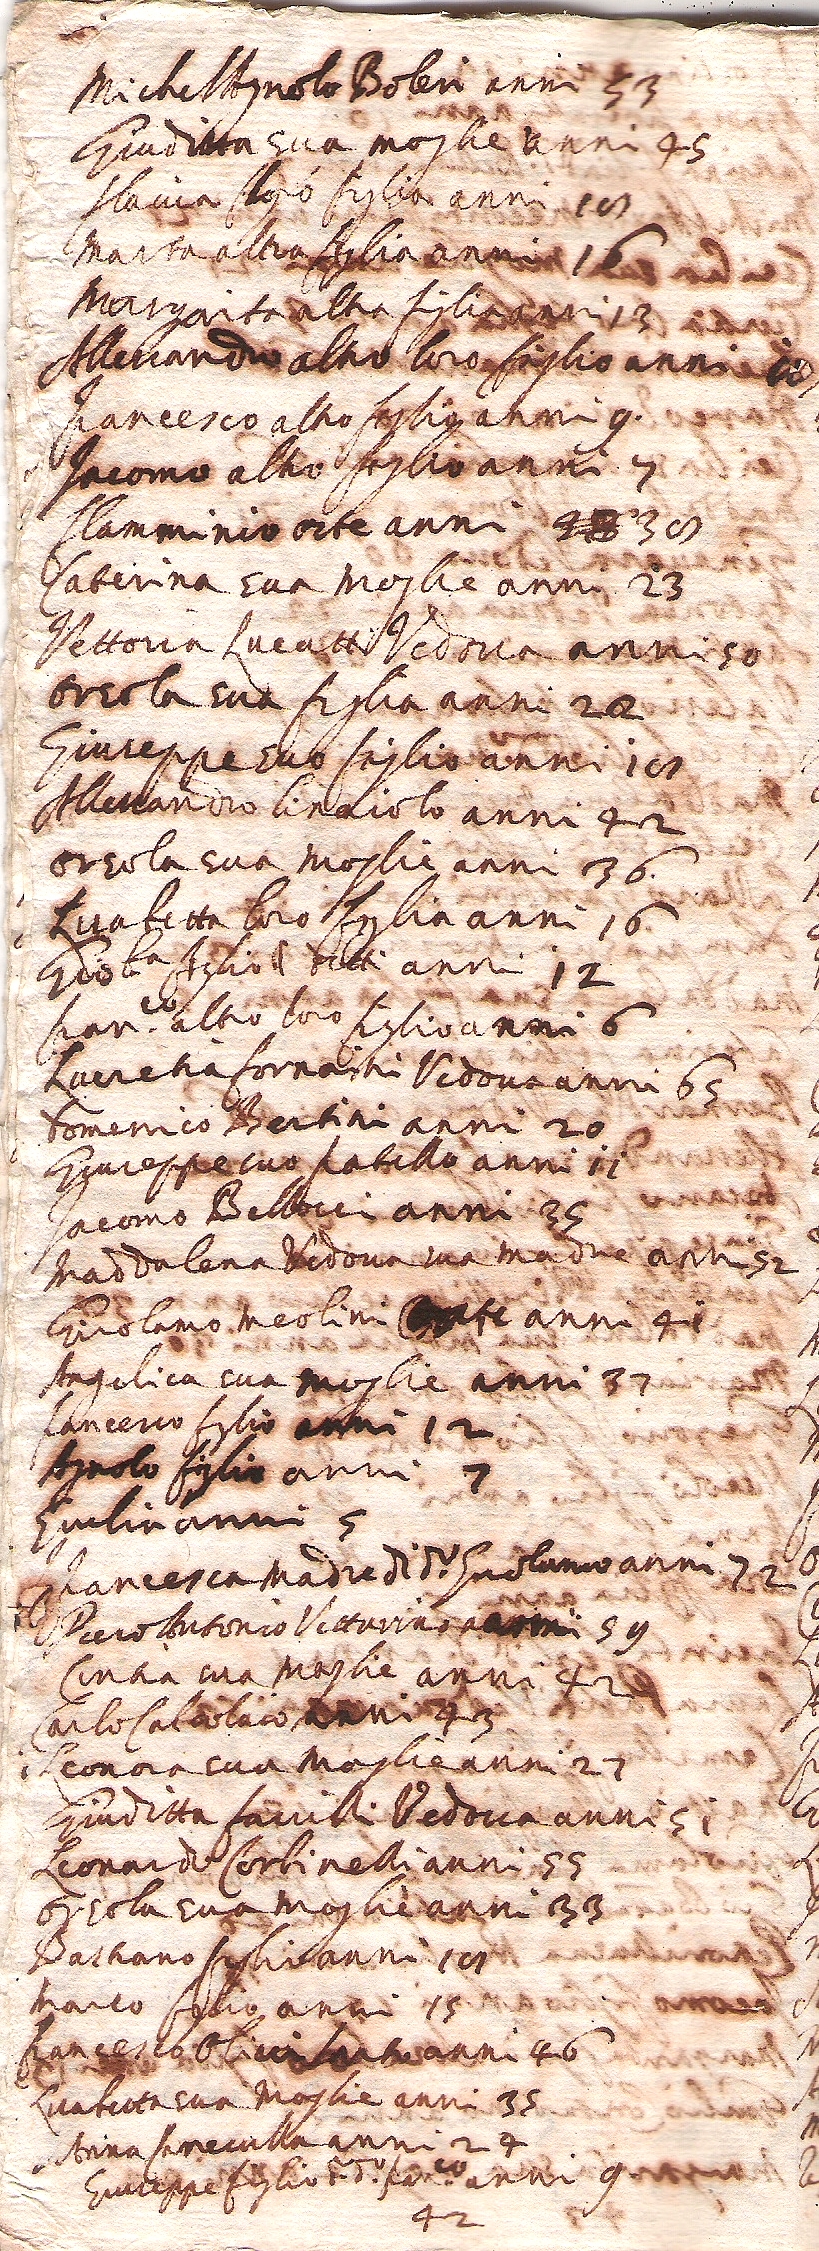 Michel'Agnolo Boleri anni 53
Giuditta sua moglie anni 45
Flavia figlia anni 18
Marta altra figlia anni 16
Margarita altra figlia anni 13
Allesandro altro loro figlio anni
Francesco altro figlio anni 9.
Jacomo altro figlio anni 7
Flamminio oste anni 38
Caterina sua moglie anni 23
Vettoria Lucatti Vedova anni 50
Orsola sua figlia anni 22
Giuseppe suo figlio anni 18
Allesandro linaiolo anni 42
Orsola sua moglie anni 36.
Lisabetta loro figlia anni 16
Gio Ba figlio detti anni 12
fran.co altro loro figlio anni 6
Lucretia fornaini Vedova anni 65
Domenico Bertini anni 20
Giuseppe suo fratello anni 11
Jacomo Bellocci anni 35
Maddalena Vedova sua madre anni 52
Girolamo Meolini anni 41
Angelica sua moglie anni 37
Francesco figlio anni 12
Agnolo figlio anni 7
Giulia anni 5
Francesca Madre di d.o Girolamo anni 72
Piero Antonio Vetturino anni 59
Cintia sua Moglie anni 42
Carlo Calzolaio anni 43
Leonora sua Moglie anni 27
Giuditta Vedova anni 51
Leonardo Corbinelli anni 55
Orsola sua moglie anni 33
Bastiano figlio anni 18
Marco figlio anni 15
Francesco anni 46
Lisabetta sua Moglie anni 35
Anna anni 24
Giuseppe figlio d.o fran.co anni 9
42